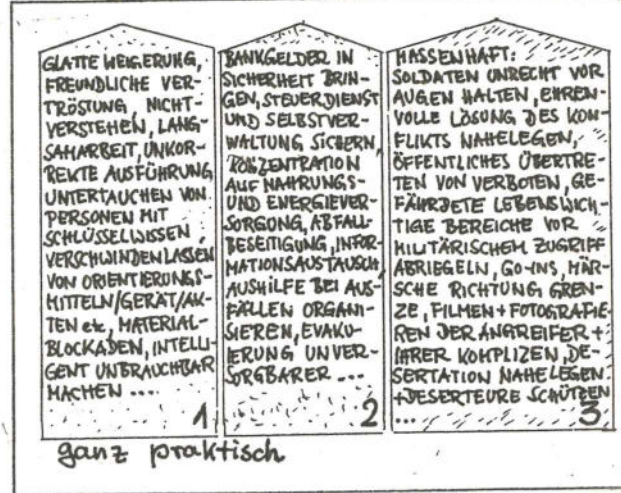 GLATTE WEIGERUNG,
FREUNDLICHE VER-
TRÖSTUNG, NICHT-
VERSTEHEN, LANG-
SAMARBEIT, UNKOR-
REKTE AUSFÜHRUNG
UNTERTAUCHEN VON
PERSONEN MIT
SCHLÜSSELWISSEN,
VERSCHWINDEN LASSEN
VON ORIENTIERUNGS-
MITTELN/GERÄT/AK-
TEN etc, MATERIAL-
BLOCKADEN, INTELLI-
GENT UNBRAUCHBAR
MACHEN ....
1
BANKGELDER IN
SICHERHEIT BRIN-
GEN, STEUERDIENST
UND SELBSTVER-
WALTUNG SICHERN,
KONZENTRATION
AUF NAHRUNGS-
UND ENERGIEVER-
SORGUNG, ABFALL-
BESEITIGUNG, INFOR-
MATIONSAUSTAUSCH,
AUSHILFE BEI AUS-
FÄLLEN ORGANI-
SIEREN, EVAKU-
IERUNG UNVER-
SORGBARER ...
2
MASSENHAFT:
SOLDATEN UNRECHT VOR
AUGEN HALTEN, EHREN-
VOLLE LÖSUNG DES KON-
FLIKTS NAHELEGEN,
ÖFFENTLICHES ÜBERTRE-
TEN VON VERBOTEN, GE-
FÄHRDETE LEBENSWICH-
TIGE BEREICHE VOR
MILITÄRISCHEM ZUGRIFF
ABRIEGELN, GO-INS, MÄR-
SCHE RICHTUNG GREN-
ZE, FILMEN+FOTOGRAFIE-
REN DER ANGREIFER +
IHRER KOMPLIZEN, DE-
SERTATION NAHELEGEN
+DESERTEURE SCHÜTZEN
...
3
ganz praktisch